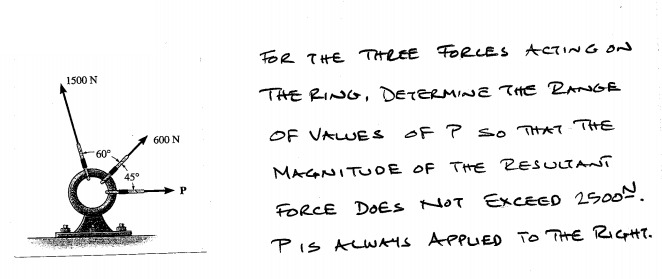 FOR THE THREE FORCES ACTING ON
THE RING, DETERMINE THE RANGE
OF VALUES OF P SO THAT THE
MAGNITUDE OF THE RESULTANT
FORCE DOES NOT EXCEED 2500N.
P IS ALWAYS APPLIED TO THE RIGHT.
1500 N
600 N
60°
45°
P